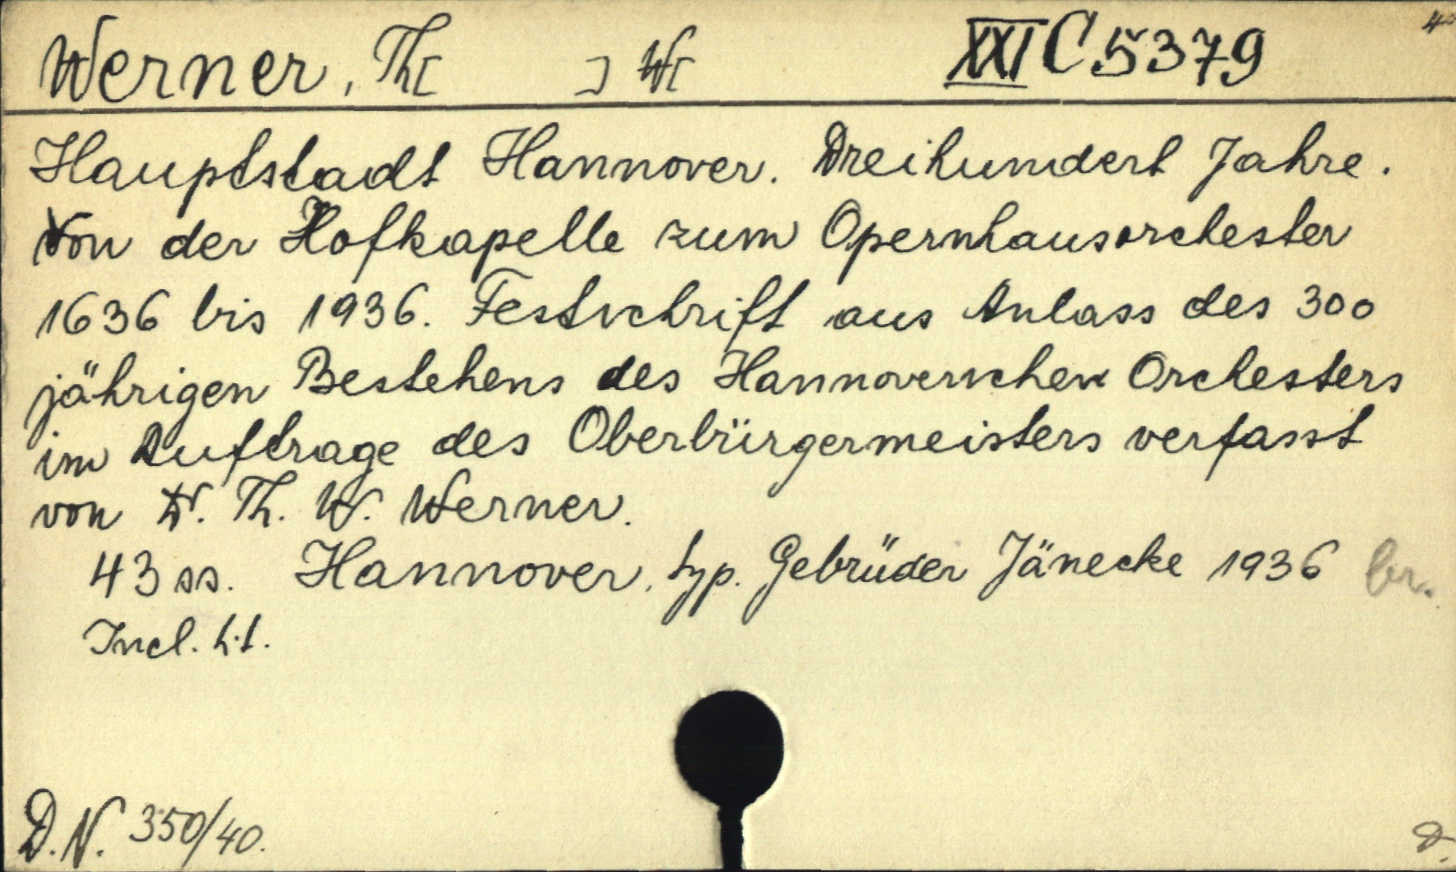 Werner, Th[ ] W[ XXI C 5379 4°
Hauptstadt Hannover. Dreihundert Jahre.
Von der Hofkapelle zum Opernhausorchester
1636 bis 1936. Festschrift aus Anlass des 300
jährigen Bestehens des Hannoverschen Orchesters
im Auftrage des Oberbürgermeisters verfasst
von Dr. Th. W. Werner.
43 ss. Hannover, typ. Gebrüder Jänecke 1936 br.
Incl. t.t.
D.N. 350/40.